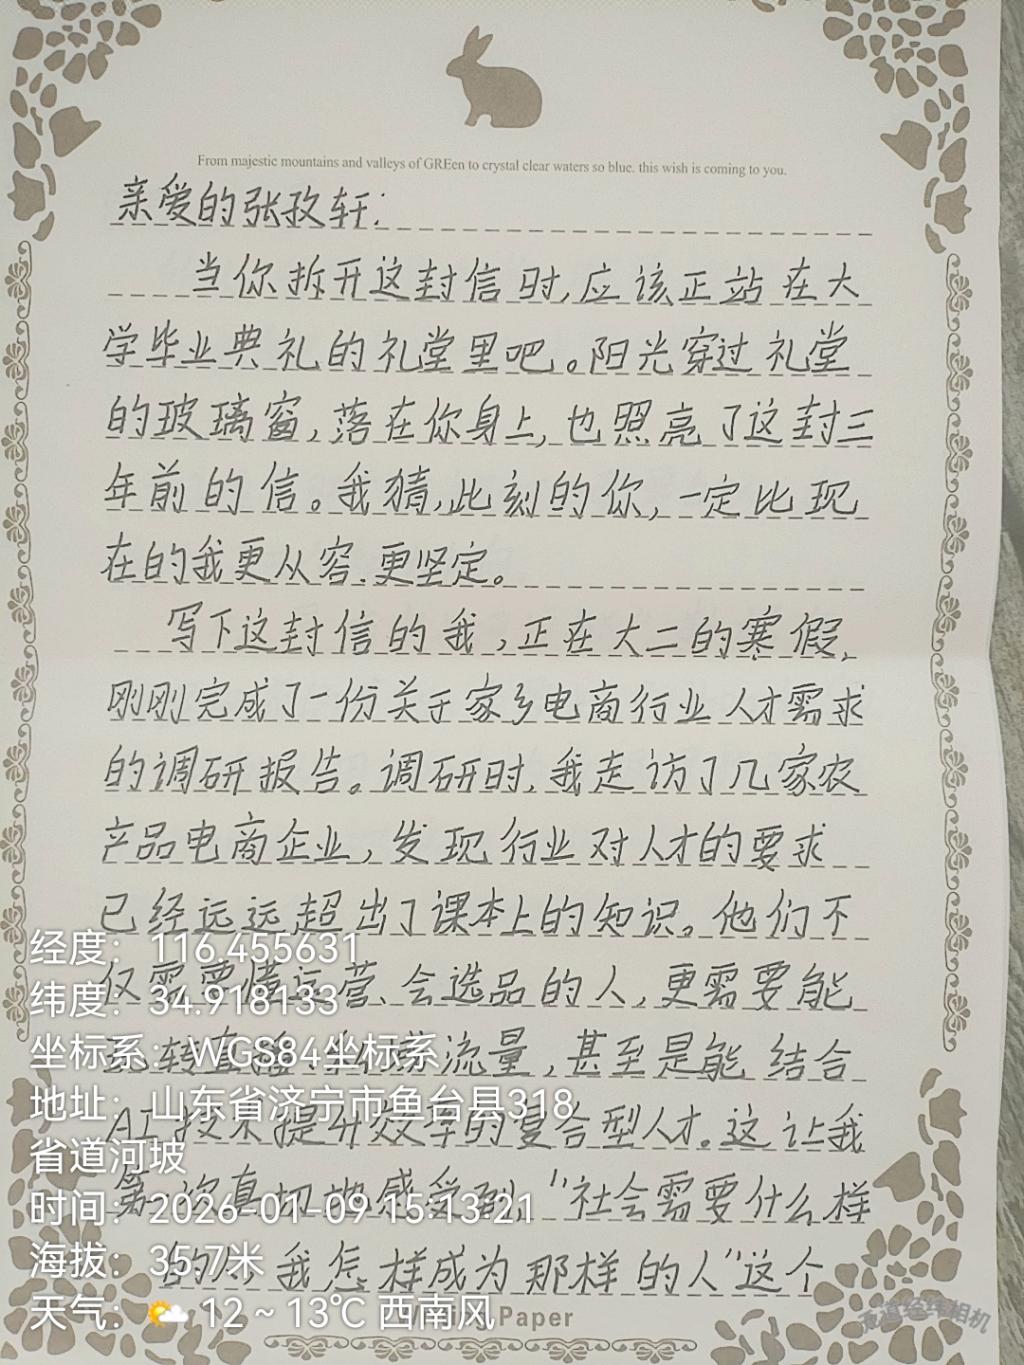 From majestic mountains and valleys of GREen to crystal clear waters so blue. this wish is coming to you.
亲爱的张孜轩:
当你拆开这封信时,应该正站在大
学毕业典礼的礼堂里吧。阳光穿过礼堂
的玻璃窗,落在你身上,也照亮了这封三
年前的信。我猜,此刻的你,一定比现
在的我更从容、更坚定。
写下这封信的我,正在大二的寒假,
刚刚完成了一份关于家乡电商行业人才需求
的调研报告。调研时,我走访了几家农
产品电商企业,发现行业对人才的要求
已经远远超出了课本上的知识。他们不
仅需要懂运营、会选品的人,更需要能
玩转直播、流量,甚至是能结合
AI技术提升效率的复合型人才。这让我
第一次真切地感受到,"社会需要什么样
的人,我怎样成为那样的人"这个
经度：116.455631
纬度：34.918133
坐标系：WGS84坐标系
地址：山东省济宁市鱼台县318
省道河坡
时间：2026-01-09 15:13:21
海拔：35.7米
天气：12 ~ 13℃ 西南风
Paper
道经纬相机